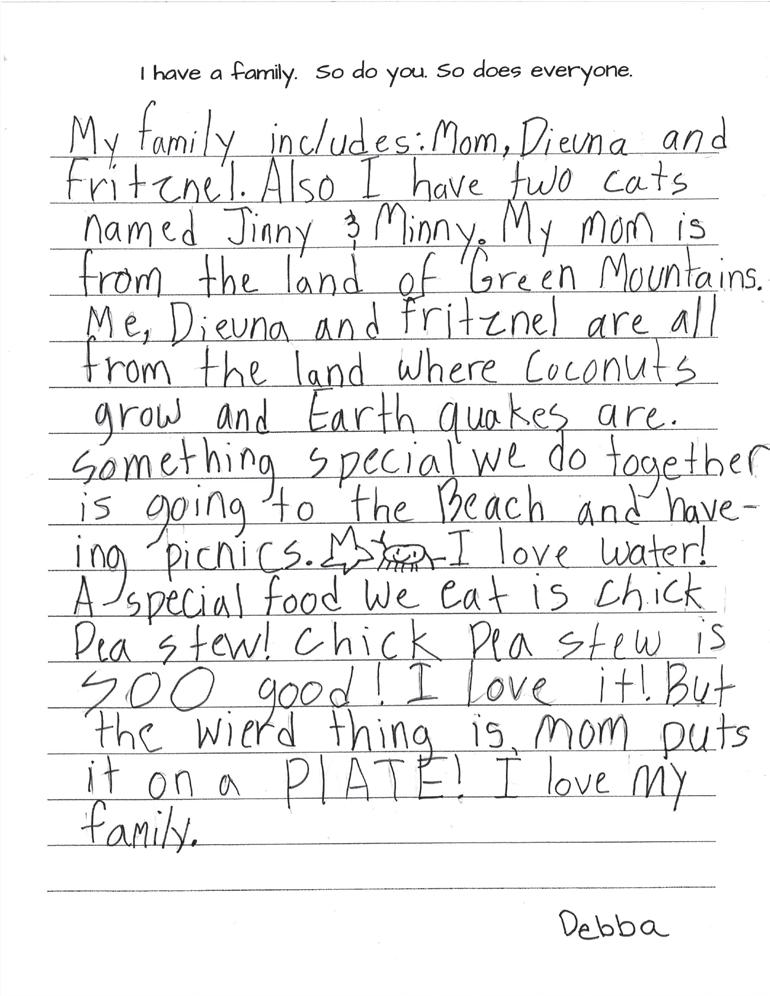 I have a family. So do you. So does everyone.
My family includes: Mom, Dieuna and
Fritznel. Also I have two cats
named Jinny & Minny. My mom is
from the land of Green Mountains.
Me, Dieuna and Fritznel are all
from the land where Coconuts
grow and Earth quakes are.
Something special we do together
is going to the Beach and have-
ing picnics. I love water!
A special food we eat is chick
Pea stew! Chick Pea stew is
SOO good! I love it! But
the wierd thing is, mom puts
it on a PlATE! I love my
family.
Debba